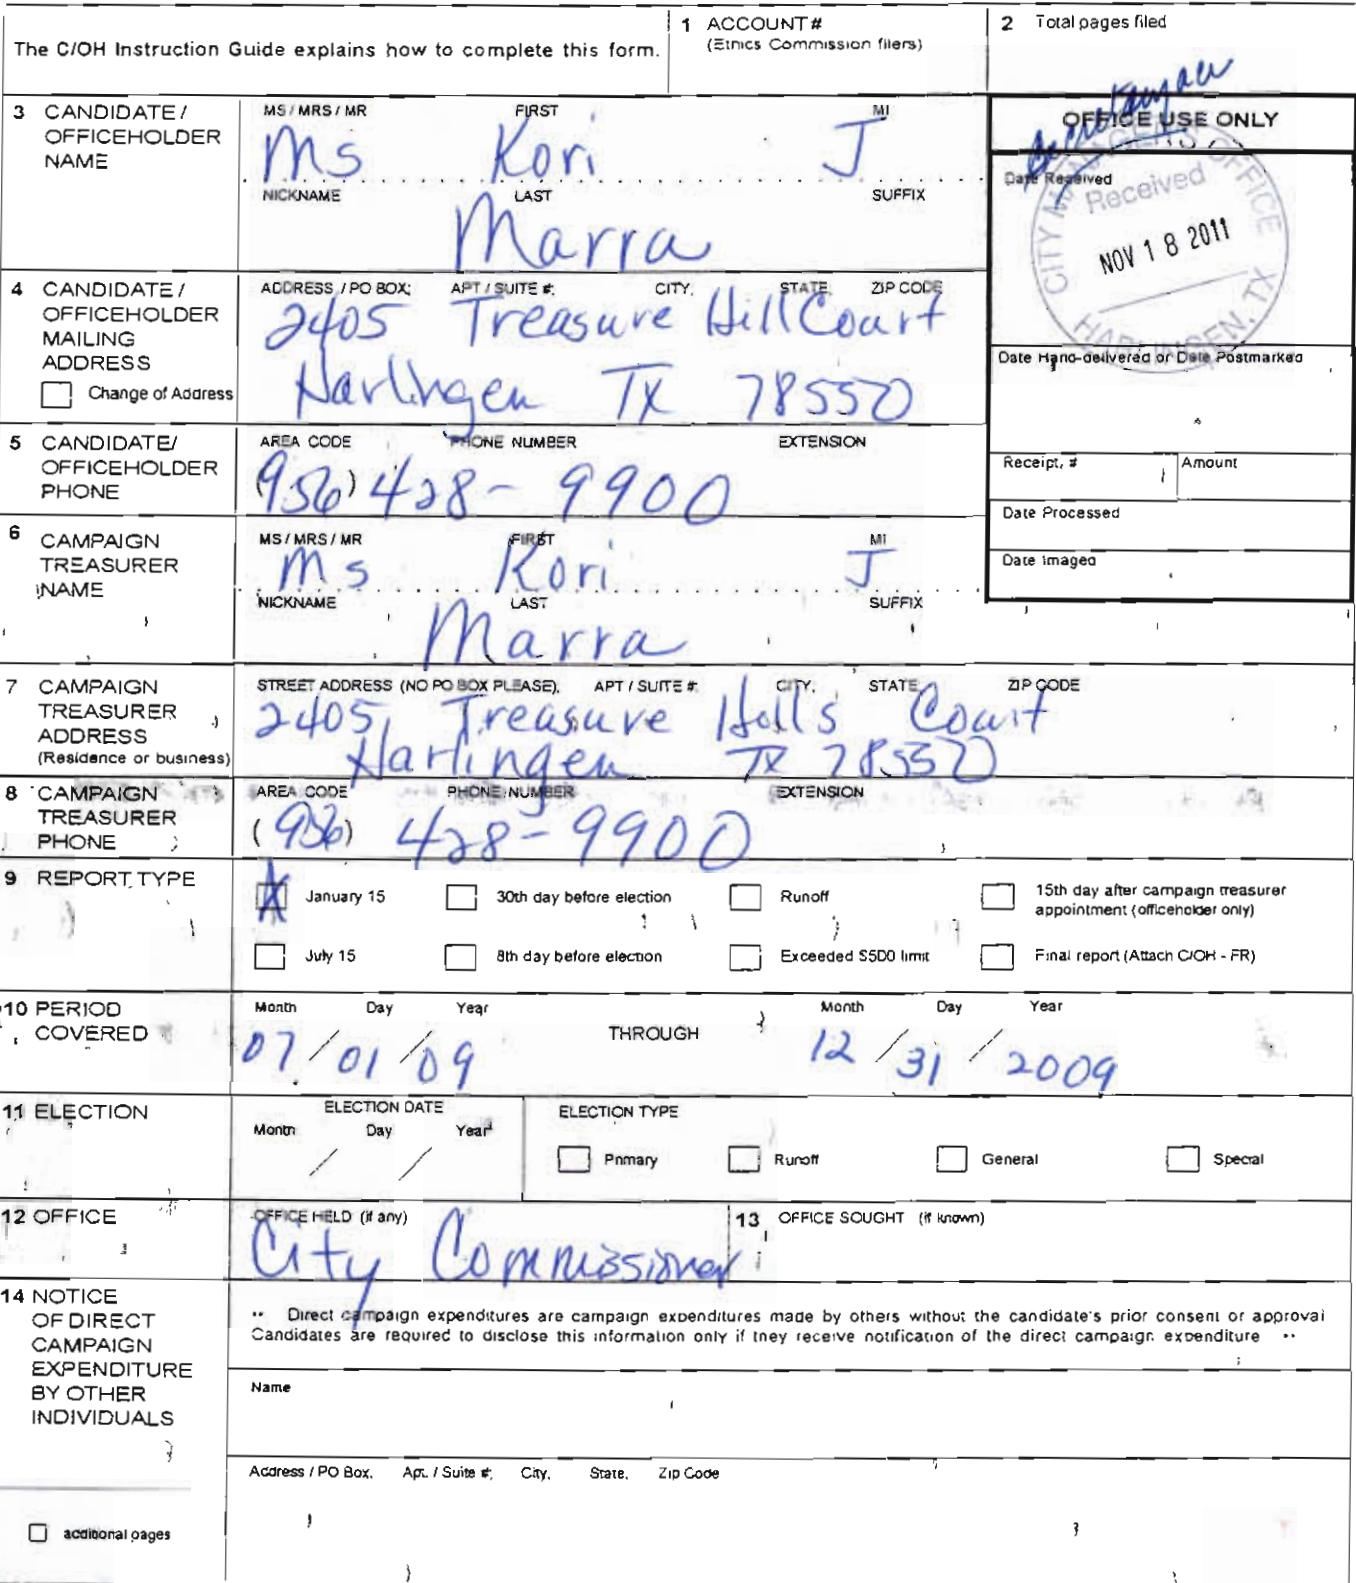 The C/OH Instruction Guide explains how to complete this form.
1 ACCOUNT #
(Ethics Commission filers)
2 Total pages filed
3 CANDIDATE /
OFFICEHOLDER
NAME
MS / MRS / MR FIRST MI
Ms Kori J
NICKNAME LAST SUFFIX
Marra
OFFICE USE ONLY
Date Received
CITY MANAGER'S OFFICE
Received
NOV 18 2011
HARLINGEN, TX
4 CANDIDATE /
OFFICEHOLDER
MAILING
ADDRESS
Change of Address
ADDRESS / PO BOX; APT / SUITE #; CITY; STATE; ZIP CODE
2405 Treasure Hill Court
Harlingen TX 78550
Date Hand-delivered or Date Postmarked
5 CANDIDATE/
OFFICEHOLDER
PHONE
AREA CODE PHONE NUMBER EXTENSION
(956) 428-9900
Receipt # Amount
Date Processed
Date Imaged
6 CAMPAIGN
TREASURER
NAME
MS / MRS / MR FIRST MI
Ms Kori J
NICKNAME LAST SUFFIX
Marra
7 CAMPAIGN
TREASURER
ADDRESS
(Residence or business)
STREET ADDRESS (NO PO BOX PLEASE); APT / SUITE #; CITY; STATE; ZIP CODE
2405 Treasure Hills Court
Harlingen TX 78550
8 CAMPAIGN
TREASURER
PHONE
AREA CODE PHONE NUMBER EXTENSION
(956) 428-9900
9 REPORT TYPE
X January 15
30th day before election
Runoff
15th day after campaign treasurer
appointment (officeholder only)
July 15
8th day before election
Exceeded $500 limit
Final report (Attach C/OH - FR)
10 PERIOD
COVERED
Month Day Year
07 / 01 / 09
THROUGH
Month Day Year
12 / 31 / 2009
11 ELECTION
ELECTION DATE
Month Day Year
/ /
ELECTION TYPE
Primary Runoff General Special
12 OFFICE
OFFICE HELD (if any)
City Commissioner
13 OFFICE SOUGHT (if known)
14 NOTICE
OF DIRECT
CAMPAIGN
EXPENDITURE
BY OTHER
INDIVIDUALS
additional pages
** Direct campaign expenditures are campaign expenditures made by others without the candidate's prior consent or approval
Candidates are required to disclose this information only if they receive notification of the direct campaign expenditure **
Name
Address / PO Box; Apt. / Suite #; City; State; Zip Code